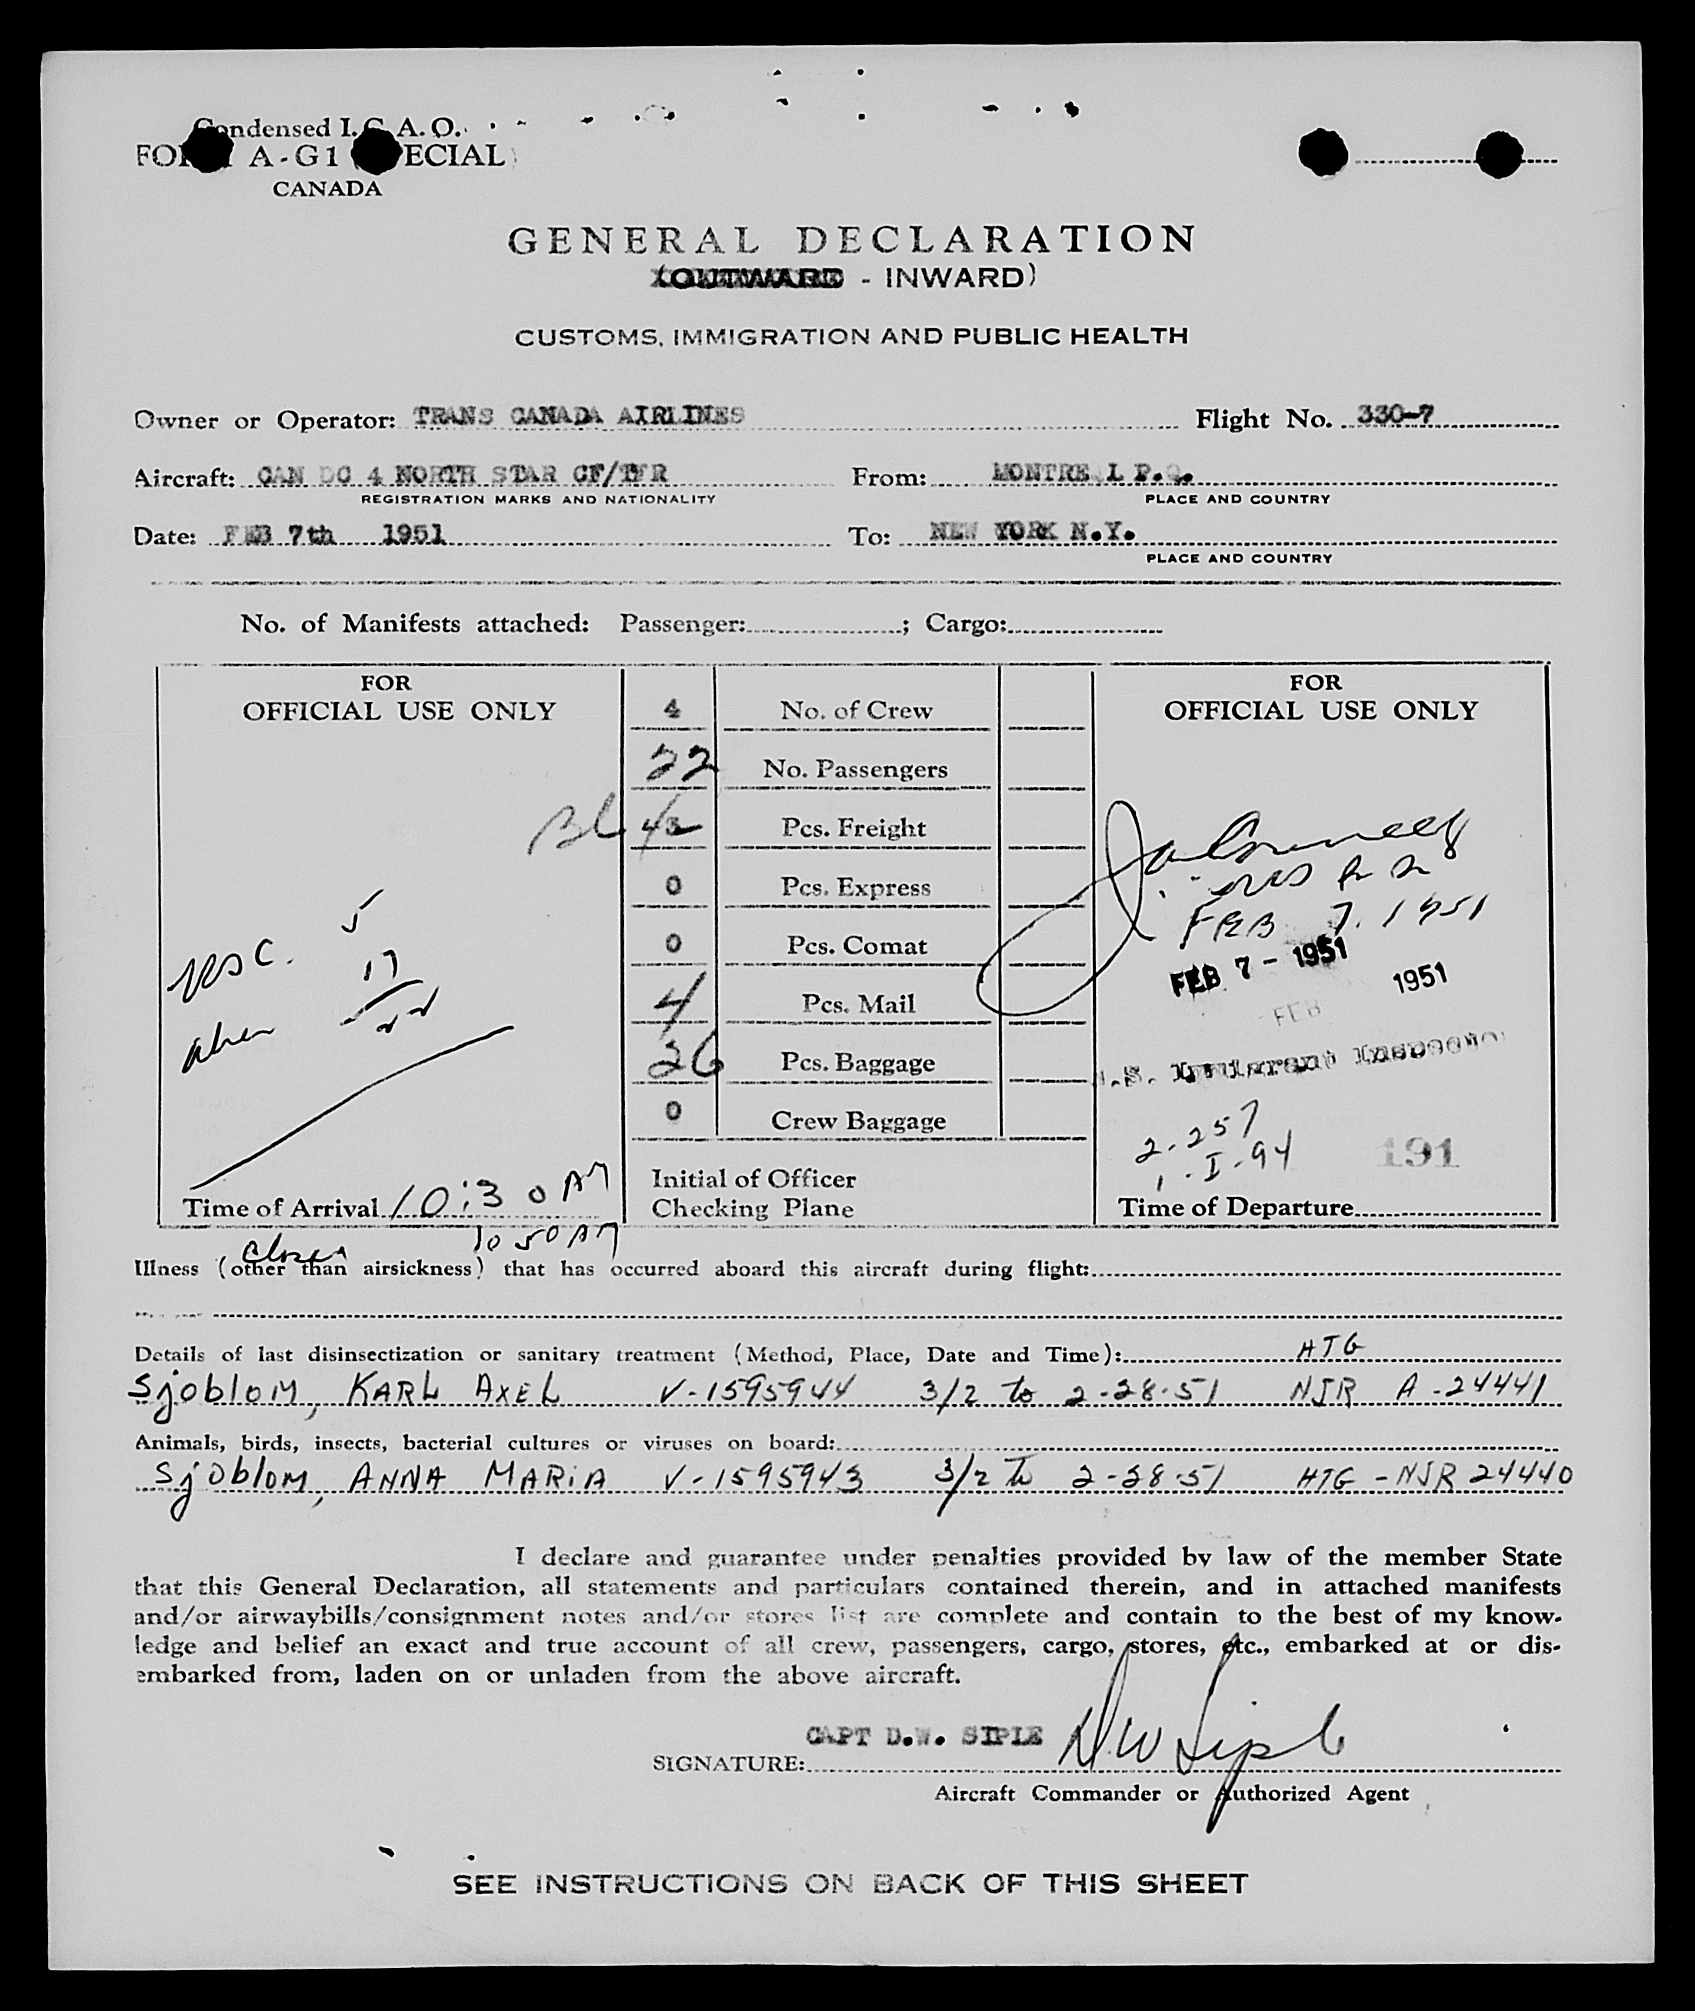 Condensed I.C.A.O.
FORM A-G1 (SPECIAL)
CANADA
GENERAL DECLARATION
(OUTWARD - INWARD)
CUSTOMS, IMMIGRATION AND PUBLIC HEALTH
Owner or Operator: TRANS CANADA AIRLINES Flight No. 330-7
Aircraft: CAN DC 4 NORTH STAR CF/TFR From: MONTREAL P.Q.
REGISTRATION MARKS AND NATIONALITY PLACE AND COUNTRY
Date: FEB 7th 1951 To: NEW YORK N.Y.
PLACE AND COUNTRY
No. of Manifests attached: Passenger: ; Cargo:
FOR
OFFICIAL USE ONLY
4 No. of Crew
22 No. Passengers
Pcs. Freight
0 Pcs. Express
0 Pcs. Comat
4 Pcs. Mail
26 Pcs. Baggage
0 Crew Baggage
USC. 5
alien 17
22
Time of Arrival 10:30 AM
10 50 AM
Initial of Officer
Checking Plane
FOR
OFFICIAL USE ONLY
FEB 7. 1951
FEB 7 - 1951
FEB 1951
U.S. Immigrant Inspector
2-257
1-I-94
191
Time of Departure
Illness (other than airsickness) that has occurred aboard this aircraft during flight:
Details of last disinsectization or sanitary treatment (Method, Place, Date and Time): HTG
Sjoblom, KARL AXEL V-1595944 3/2 to 2-28-51 NJR A-24441
Animals, birds, insects, bacterial cultures or viruses on board:
Sjoblom, ANNA MARIA V-1595943 3/2 to 2-28-51 HTG - NJR 24440
I declare and guarantee under penalties provided by law of the member State
that this General Declaration, all statements and particulars contained therein, and in attached manifests
and/or airwaybills/consignment notes and/or stores list are complete and contain to the best of my know-
ledge and belief an exact and true account of all crew, passengers, cargo, stores, etc., embarked at or dis-
embarked from, laden on or unladen from the above aircraft.
CAPT D.W. SIPLE DW Siple
SIGNATURE:
Aircraft Commander or Authorized Agent
SEE INSTRUCTIONS ON BACK OF THIS SHEET